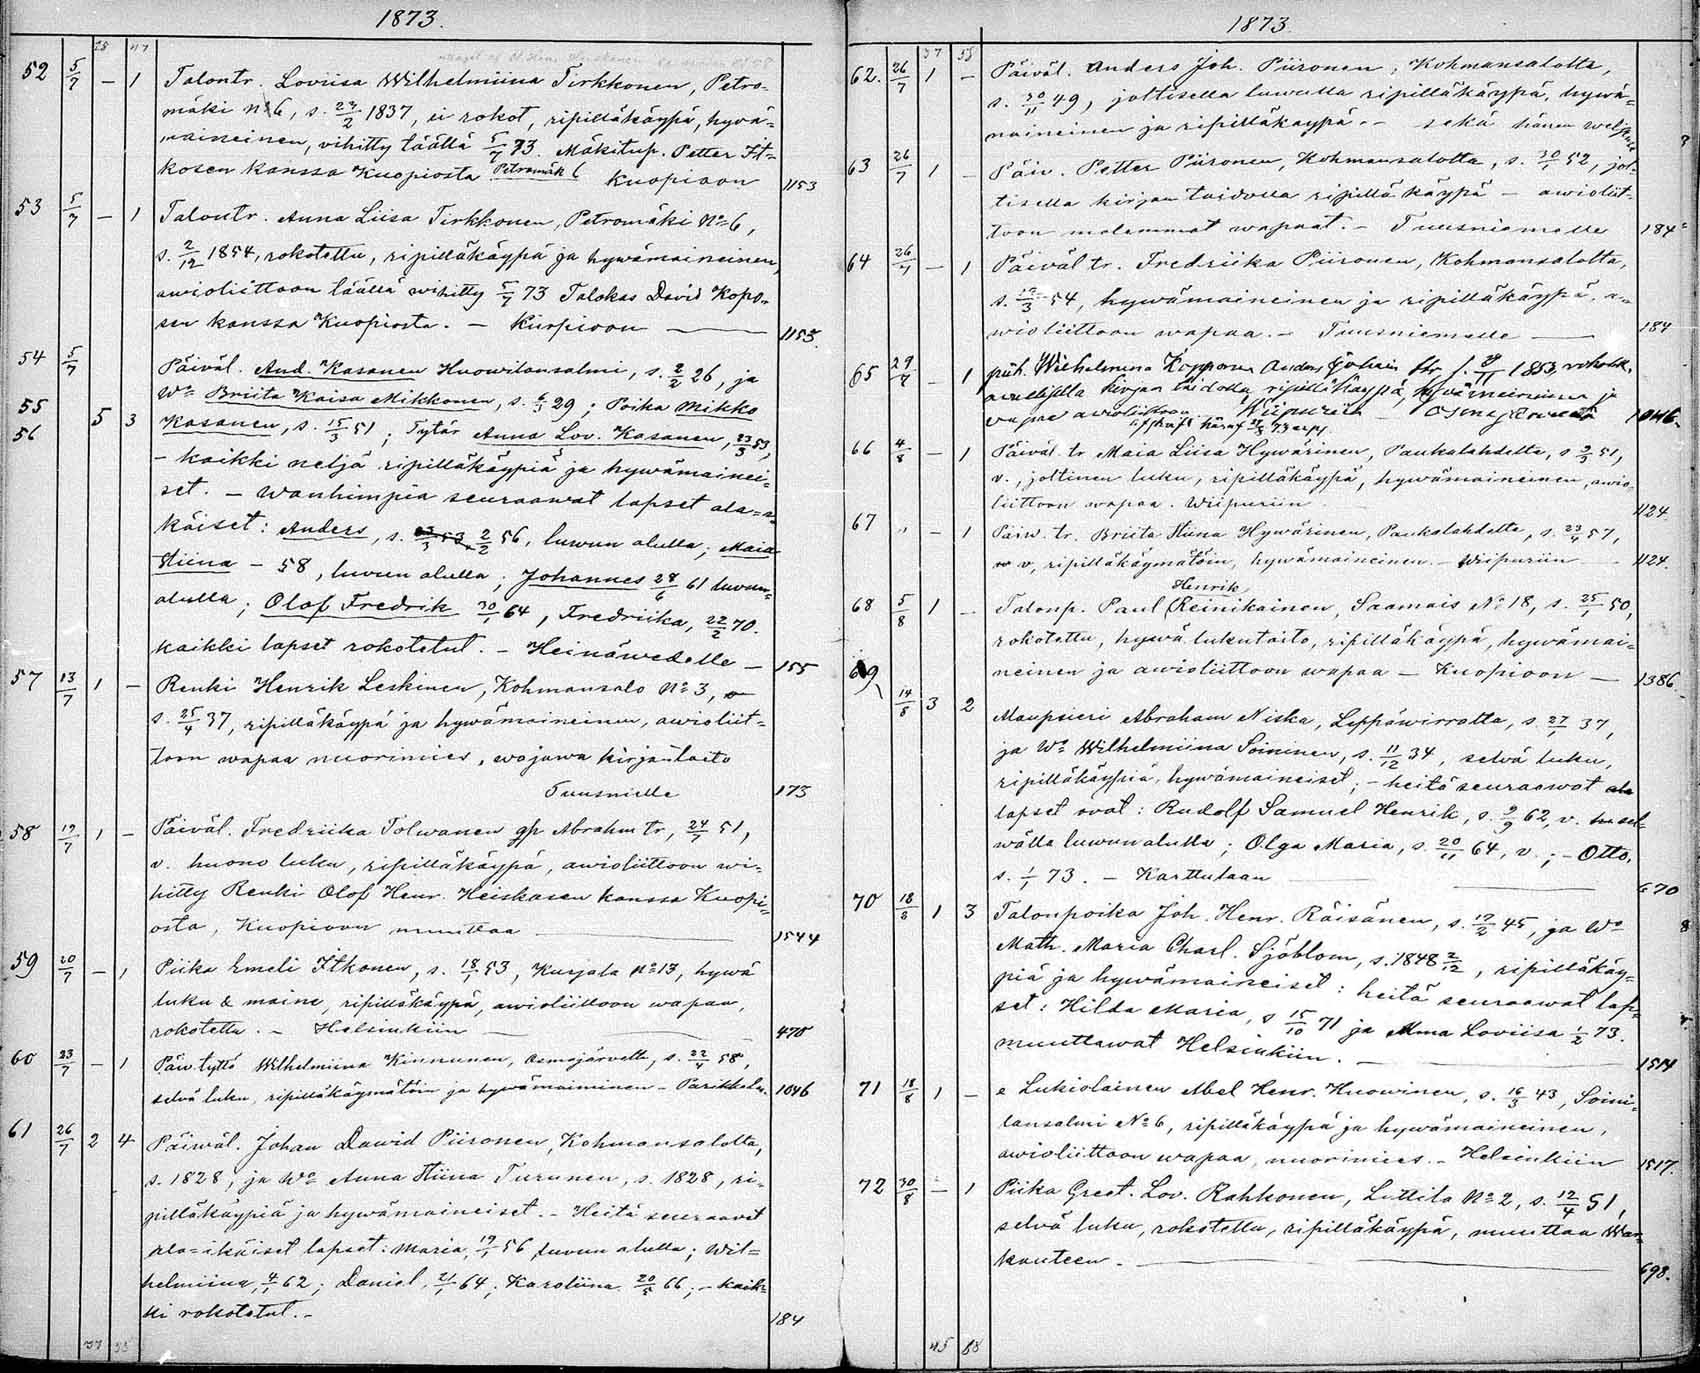 1873.
28 47
52 5/7 — 1 Talontr. Loviisa Wilhelmiina Tirkkonen, Petro-
mäki No 6, s. 1837, ei rokot, ripilläkäypä, hyvä-
maineinen, vihitty täällä 5/7 73. Mäkitup. Petter It-
kosen kanssa Kuopiosta Petromäk 6 Kuopioon 1153
53 5/7 — 1 Talontr. Anna Liisa Tirkkonen, Petromäki No 6,
s. 2/12 1854, rokotettu, ripilläkäypä ja hywämaineinen,
awioliittoon täällä wihitty 5/7 73 Talokas David Kopo-
sen kanssa Kuopiosta. — Kuopioon — 1153.
54 5/7 Päiväl. And. Kasanen Huowilansalmi, s. 2/2 26, ja
55 5 3 Wo Briita Kaisa Mikkonen, s. 6/3 29; Poika Mikko
56 Kasanen, s. 15/3 51; Tytär Anna Lov. Kasanen, 23/3 53,
— kaikki neljä ripilläkäypiä ja hywämainei-
set. — Wanhimpia seuraawat lapset ala-i-
käiset: Anders, s. 2/2 56, luwun alulla; Maia
Stiina — 58, luvun alulla; Johannes 28/6 61 luvun-
alulla; Olof Fredrik 30/1 64, Fredriika, 22/2 70.
kaikki lapset rokotetut. — Heinäwedelle — 155
57 13/7 1 — Renki Henrik Leskinen, Kohmansalo No 3,
s. 25/4 37, ripilläkäypä ja hywämaineinen, awioliit-
toon wapaa nuorimies, wajawa kirjantaito
Tuusnielle 173
58 19/7 1 — Päiväl. Fredriika Tolwanen gp Abrahm tr, 24/7 51,
v. huono luku, ripilläkäypä, awioliittoon wi-
hitty Renki Olof Henr. Heiskasen kanssa Kuopi-
osta, Kuopioon muuttaa — 1544
59 20/7 — 1 Piika Emeli Itkonen, s. 18/1 53, Kurjala No 13, hywä
luku & maine, ripilläkäypä, awioliittoon wapaa,
rokotettu. — Helsinkiin — 470
60 23/7 — 1 Päiv. tyttö Wilhelmiina Kinnunen, Osmajärveltä, s. 22/4 58,
selvä luku, ripilläkäymätöin ja hywämaininen — Parikkala. 1046
61 26/7 2 4 Päiwäl. Johan Dawid Piironen, Kohmansalolta,
s. 1828, ja Wo Anna Stiina Turunen, s. 1828, ri-
pilläkäypiä ja hywämaineiset. — Heitä seuraavat
ala-ikäiset lapset: Maria, 19/1 56 luvun alulla; Wil-
helmiina, 4/1 62; Daniel, 21/1 64; Karoliina 20/5 66; — kaik-
ki rokotetut. — 184
37 55
1873.
37 58
62. 26/7 1 — Päiväl. Anders Joh. Piironen, Kohmansalolta,
s. 30/11 49, jollisella luwulla ripilläkäypä, hywä-
maineinen ja ripilläkäypä. — sekä hänen weljensä
63 26/7 1 — Päiv. Petter Piironen, Kohmansalolta, s. 30/1 52, jol-
lisella kirjan taidolla ripilläkäypä — awioliit-
toon molemmat wapaat. — Tuusniemelle 184
64 26/7 — 1 Päiväl tr. Fredriika Piironen, Kohmansalolta,
s. 17/3 54, hywämaineinen ja ripilläkäypä, a-
wioliittoon wapaa. — Tuusniemelle — 184
65 29/7 — 1 piik. Wilhelmina Kopponen Anders Johan tr. 1853 rokott.
awullisella kirjan taidolla ripilläkäypä, hywämaineinen ja
vapaa awioliittoon Wiipuriin 1046.
66 4/8 — 1 Päiväl. tr Maia Liisa Hywärinen, Paukalahdelta, s 2/3 51,
v., jollinen luku, ripilläkäypä, hywämaineinen, awio-
liittoon wapaa. Wiipuriin 1124
67 " — 1 Päiw. tr. Briita Stiina Hywärinen, Paukalahdelta, s. 23/4 57,
v, ripilläkäymätöin, hywämaineinen. — Wiipuriin — 1124.
Henrik
68 5/8 1 — Talonp. Paul Reinikainen, Saamais No 18, s. 25/1 50,
rokotettu, hywä lukutaito, ripilläkäypä, hywämai-
neinen ja awioliittoon wapaa — Kuopioon — 1386.
69 14/8 3 2 Maupsieri Abraham Niska, Leppäwirralta, s. 27/1 37,
ja Wo Wilhelmiina Soininen, s. 11/12 34, selvä luku,
ripilläkäypiä, hywämaineiset; — heitä seuraawat
lapset ovat: Rudolf Samuel Henrik, s. 9/9 62, v. sel-
wällä luwun alulla; Olga Maria, s. 20/11 64, v.; — Otto,
s. 1/1 73. — Karttulaan — 670
70 18/8 1 3 Talonpoika Joh. Henr. Räisänen, s. 17/2 45, ja Wo
Math. Maria Charl. Sjöblom, s. 1848 2/12, ripilläkäy-
piä ja hywämaineiset: heitä seuraawat lap-
set: Hilda Maria, s 15/10 71 ja Alma Loviisa 1/2 73.
muuttawat Helsinkiin. — 1514
71 18/8 1 — e Lukiolainen Abel Henr. Huowinen, s. 16/3 43, Soini-
lansalmi No 6, ripilläkäypä ja hywämaineinen,
awioliittoon wapaa, nuorimies. — Helsinkiin 1517.
72 30/8 — 1 Piika Gret. Lov. Rahkonen, Luttila No 2, s. 12/4 51,
selvä luku, rokotettu, ripilläkäypä, muuttaa War-
kauteen. — 698.
45 68